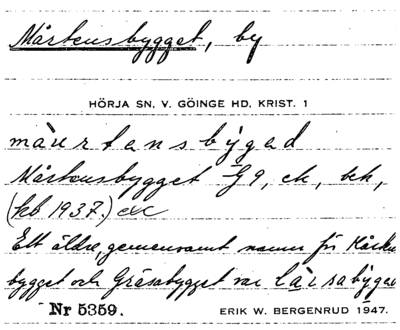 Mårtensbygget, by
HÖRJA SN, V. GÖINGE HD, KRIST. 1
màurtansbýgad
Mårtensbygget G9, ek, bek,
(kb 1937.)
Ett äldre, gemensamt namn för
bygget och Gräsabygget var làrsabýgad
Nr 5359.
ERIK W. BERGENRUD 1947.